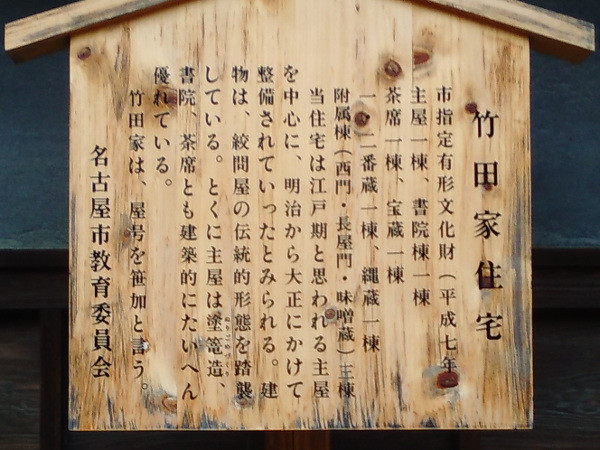 竹田家住宅
市指定有形文化財(平成七年)
主屋一棟、書院棟一棟
茶席一棟、宝蔵一棟
一・二番蔵一棟、縄蔵一棟
附属棟(西門・長屋門・味噌蔵)三棟
当住宅は江戸期と思われる主屋
を中心に、明治から大正にかけて
整備されていったとみられる。建
物は、絞問屋の伝統的形態を踏襲
している。とくに主屋は塗篭造、
ぬりごめづくり
書院、茶席とも建築的にたいへん
優れている。
竹田家は、屋号を笹加と言う。
名古屋市教育委員会